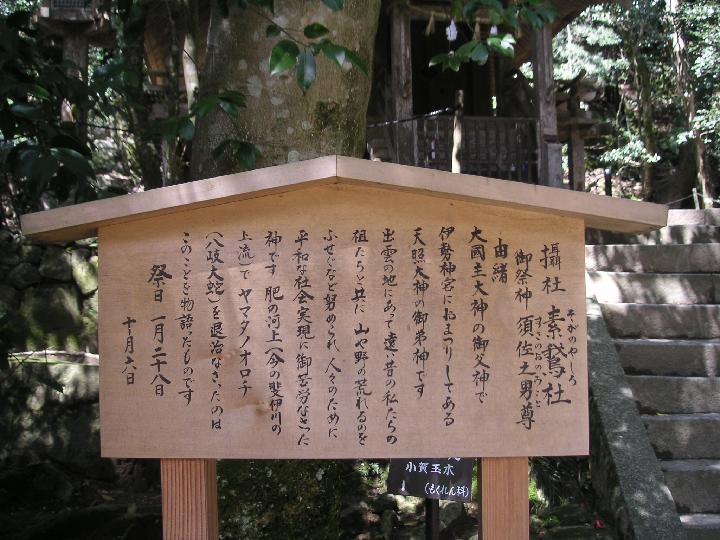 攝社 素鵞社
そがのやしろ
御祭神 須佐之男尊
すさのおのみこと
由緒
大國主大神の御父神で
伊勢神宮におまつりしてある
天照大神の御弟神です
出雲の地にあって遠い昔の私たちの
祖たちと共に 山や野の荒れるのを
ふせぐなど努められ 人々のために
平和な社会実現に御苦労なさった
神です 肥の河上(今の斐伊川の
上流)で ヤマタノオロチ
(八岐大蛇)を退治なさったのは
このことを物語たものです
祭日 一月二十八日
十月六日
小賀玉木
(もくれん科)